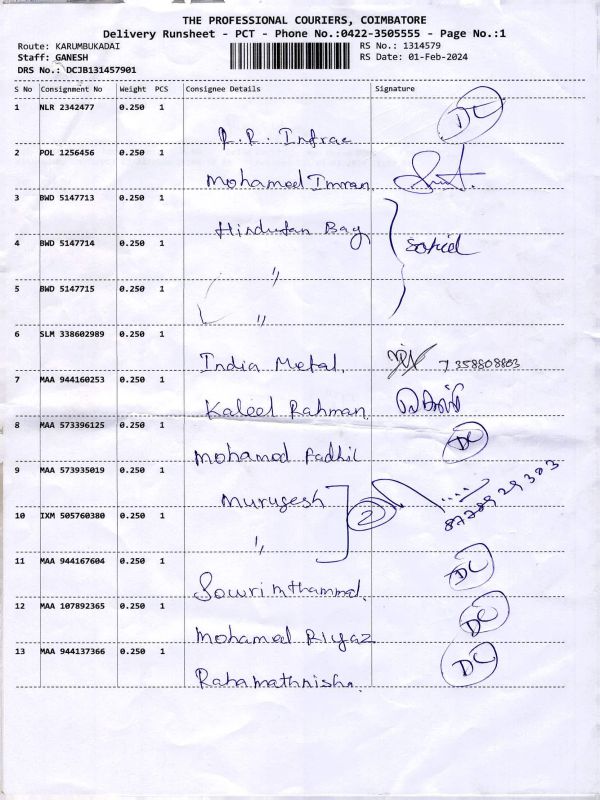 THE PROFESSIONAL COURIERS, COIMBATORE
Delivery Runsheet - PCT - Phone No.:0422-3505555 - Page No.:1
Route: KARUMBUKADAI RS No.: 1314579
Staff: GANESH RS Date: 01-Feb-2024
DRS No.: DCJB131457901
S No Consignment No Weight PCS Consignee Details Signature
1 NLR 2342477 0.250 1 DC
R.R. Infrae
2 POL 1256456 0.250 1
Mohamed Imran
3 BWD 5147713 0.250 1
Hindustan Bag
4 BWD 5147714 0.250 1
"
5 BWD 5147715 0.250 1
"
6 SLM 338602989 0.250 1
India Metal. 7358808803
7 MAA 944160253 0.250 1
Kaleel Rahman
8 MAA 573396125 0.250 1 DC
Mohamed Fadhil
9 MAA 573935019 0.250 1
Murugesh 2 8778929303
10 IXM 505760380 0.250 1
"
11 MAA 944167604 0.250 1 DC
12 MAA 107892365 0.250 1 DC
Mohamed Riyaz
13 MAA 944137366 0.250 1 DC
Rahamathnisha.